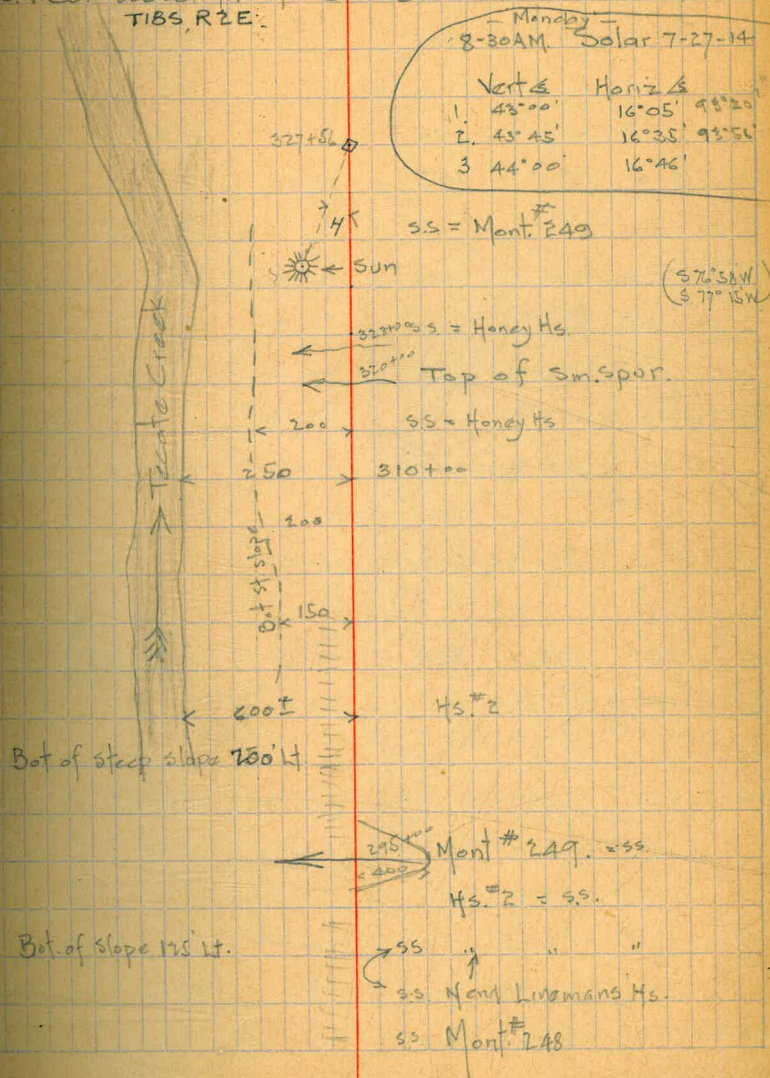 T18S, R2E.
- Monday -
8-30AM. Solar 7-27-14
Vert ∠s Horiz ∠s
1. 43°00' 16°05' 93°20'
2. 43°45' 16°35' 93°56'
3 44°00' 16°46'
327+56
H
S.S = Mont. #249
Sun
(S 76°58'W
S 77°15'W)
323+00 S.S. = Honey Hs.
320+00 Top of Sm. Spur.
200 S.S = Honey Hs
250 310+00
Tecate Creek
200
Bot st. slope
150
600± Hs. #2
Bot of steep slope 200' Lt
295+00 Mont #249. = SS.
400
Hs. #2 = S.S.
Bot. of slope 125' Lt.
SS " " "
S.S. N end Linemans Hs.
SS Mont. #248